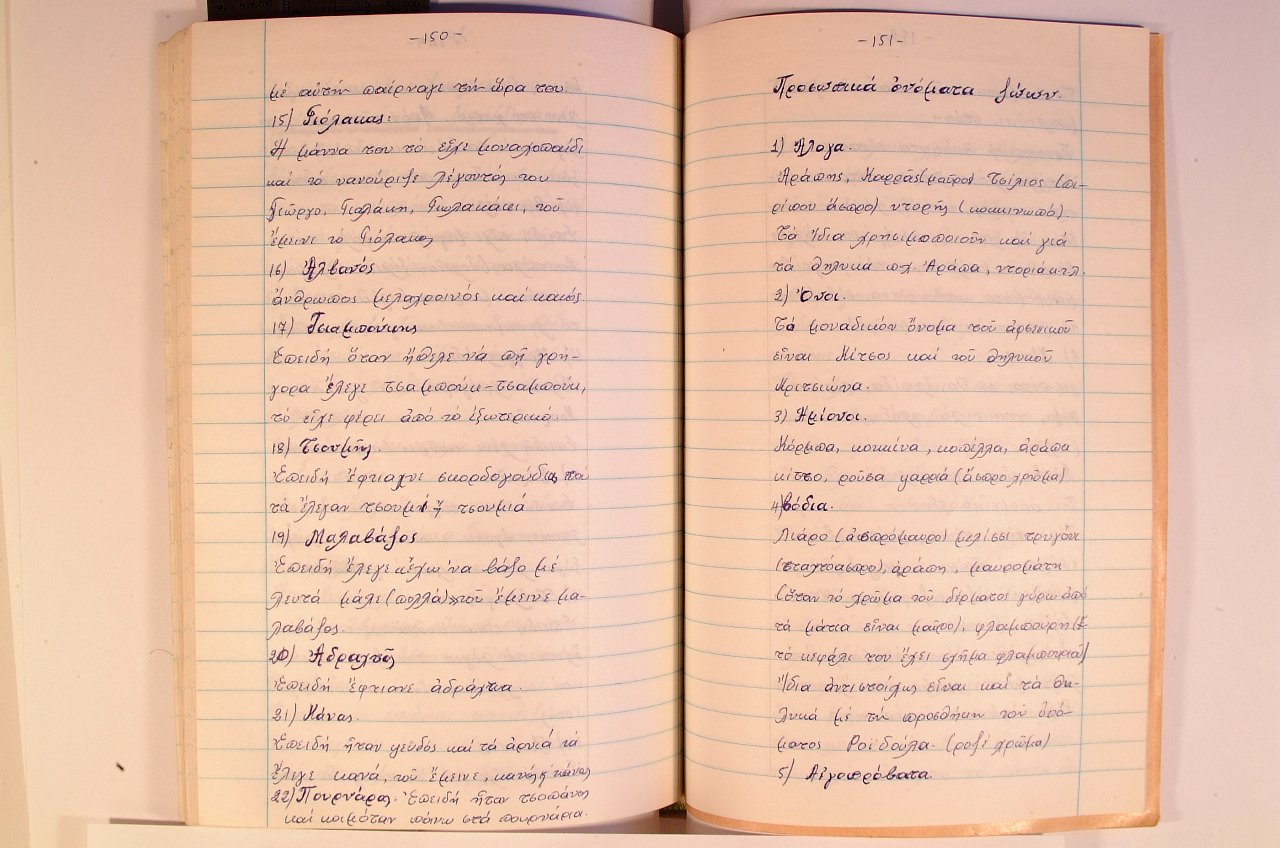 -150-
μέ αὐτήν παίρναγε τήν ὥρα του
15) Γιόλακας:
Ἡ μάννα του τό εἶχε μοναχοπαίδι
καί τό νανούριζε λέγοντάς του
Γιῶργο, Γιολάκη, Γιωλακάκι, τοῦ
ἔμεινε τό Γιόλακας
16) Ἀλβανός
ἄνθρωπος μελαχροινός καί κακός
17) Τσαμπούκης
Ἐπειδή ὅταν ἤθελε νά πῆ γρή-
γορα ἔλεγε τσαμπούκ-τσαμπούκ,
τό εἶχε φέρει ἀπό τό ἐξωτερικό
18) Τσουμῆς.
Ἐπειδή ἔφτιαχνε σκορδογούδια, πού
τά ἔλεγαν τσουμί ἤ τσουμιά
19) Μαλαβάζος
Ἐπειδή ἔλεγε ἔχω να βάζο μέ
λευτά μάλε (πολλά)» τοῦ ἔμεινε μα-
λαβάζος.
20) Ἀδραχτᾶς
Ἐπειδή ἔφτιανε ἀδράχτια.
21) Κάνας
Ἐπειδή ἦταν ψευδός καί τά ἀρνιά τά
ἔλεγε κανά, τοῦ ἔμεινε, κανάς ἤ κάνας
22) Πουρνάρας: Ἐπειδή ἦταν τσοπάνος
καί κοιμόταν πάνω στά πουρνάρια.
-151-
Προσωπικά ὀνόματα ζώων.
1) Ἄλογα.
Ἀράπης, Καρρᾶς (μαῦρος) Τσίλιος (πε-
ρίπου ἄσπρο) ντορῆς (κοκκινωπό).
Τά ἴδια χρησιμοποιοῦν καί γιά
τά θηλυκά πχ. Ἀράπα, ντοριά κτλ.
2) Ὄνοι.
Τό μοναδικόν ὄνομα τοῦ ἀρσενικοῦ
εἶναι Κίτσος καί τοῦ θηλυκοῦ
Κριτσιώνα.
3) Ἡμίονοι.
Κόρμπα, κοκκίνα, κοπέλλα, ἀράπα
κίτσο, ροῦσα ψαρρά (ἄσπρο χρῶμα)
4) Βόδια.
Λιάρο (ἀσπρόμαυρο) μελίσσι τρυγόνι
(σταχτόασπρο), ἀράπη, μαυρομάτη
(ὅταν τό χρῶμα τοῦ δέρματος γύρω ἀπό
τά μάτια εἶναι μαῦρο), φλαμπούρη (
τό κεφάλι του ἔχει σχῆμα φλαμπουριοῦ)
Ἴδια ἀντιστοίχως εἶναι καί τά θη-
λυκά μέ τή προσθήκη τοῦ ὀνό-
ματος Ροϊδούλα. (ροζέ χρῶμα)
5) Αἰγοπρόβατα